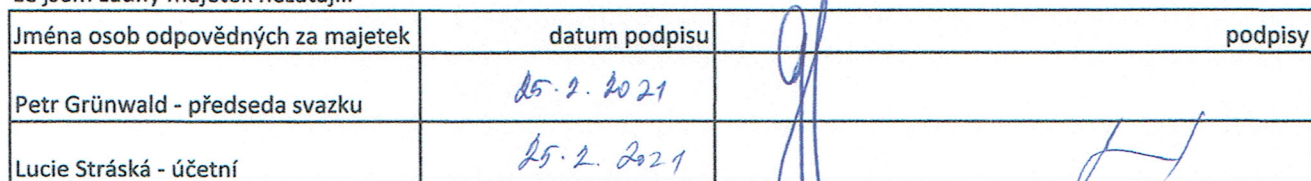 Jména osob odpovědných za majetek datum podpisu podpisy
Petr Grünwald - předseda svazku 25.2.2021
Lucie Stráská - účetní 25.2.2021